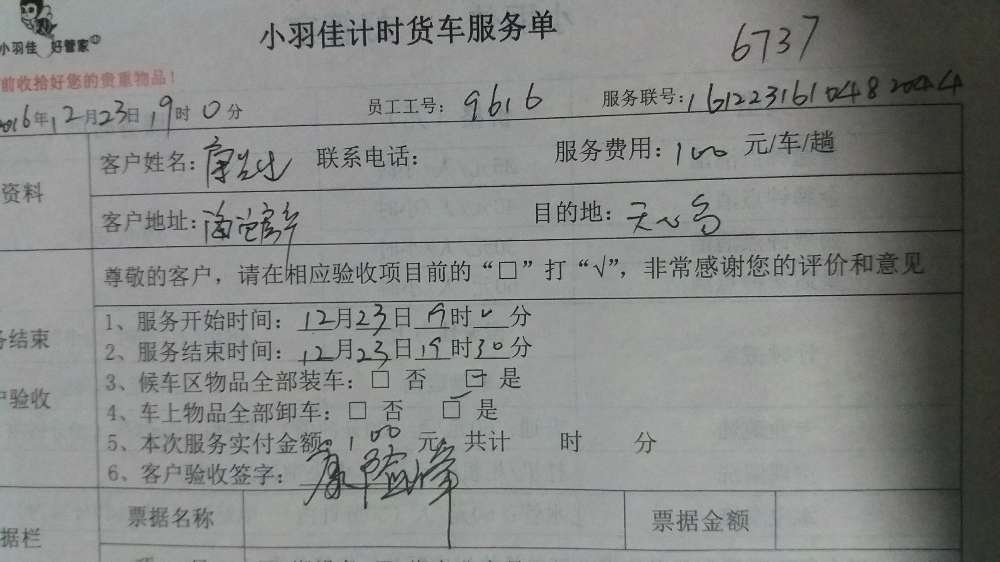 小羽佳计时货车服务单
6737
小羽佳 好管家
前收拾好您的贵重物品！
2016年12月23日19时0分 员工工号：9616 服务联号：161223161048 2044
资料
客户姓名：康先生 联系电话： 服务费用：100 元/车/趟
客户地址： 目的地：天心岛
尊敬的客户，请在相应验收项目前的“□”打“√”，非常感谢您的评价和意见
务结束
户验收
1、服务开始时间：12月23日19时0分
2、服务结束时间：12月23日19时30分
3、候车区物品全部装车：□ 否 ☑ 是
4、车上物品全部卸车：□ 否 ☑ 是
5、本次服务实付金额：100 元 共计 时 分
6、客户验收签字：康
据栏
票据名称 票据金额